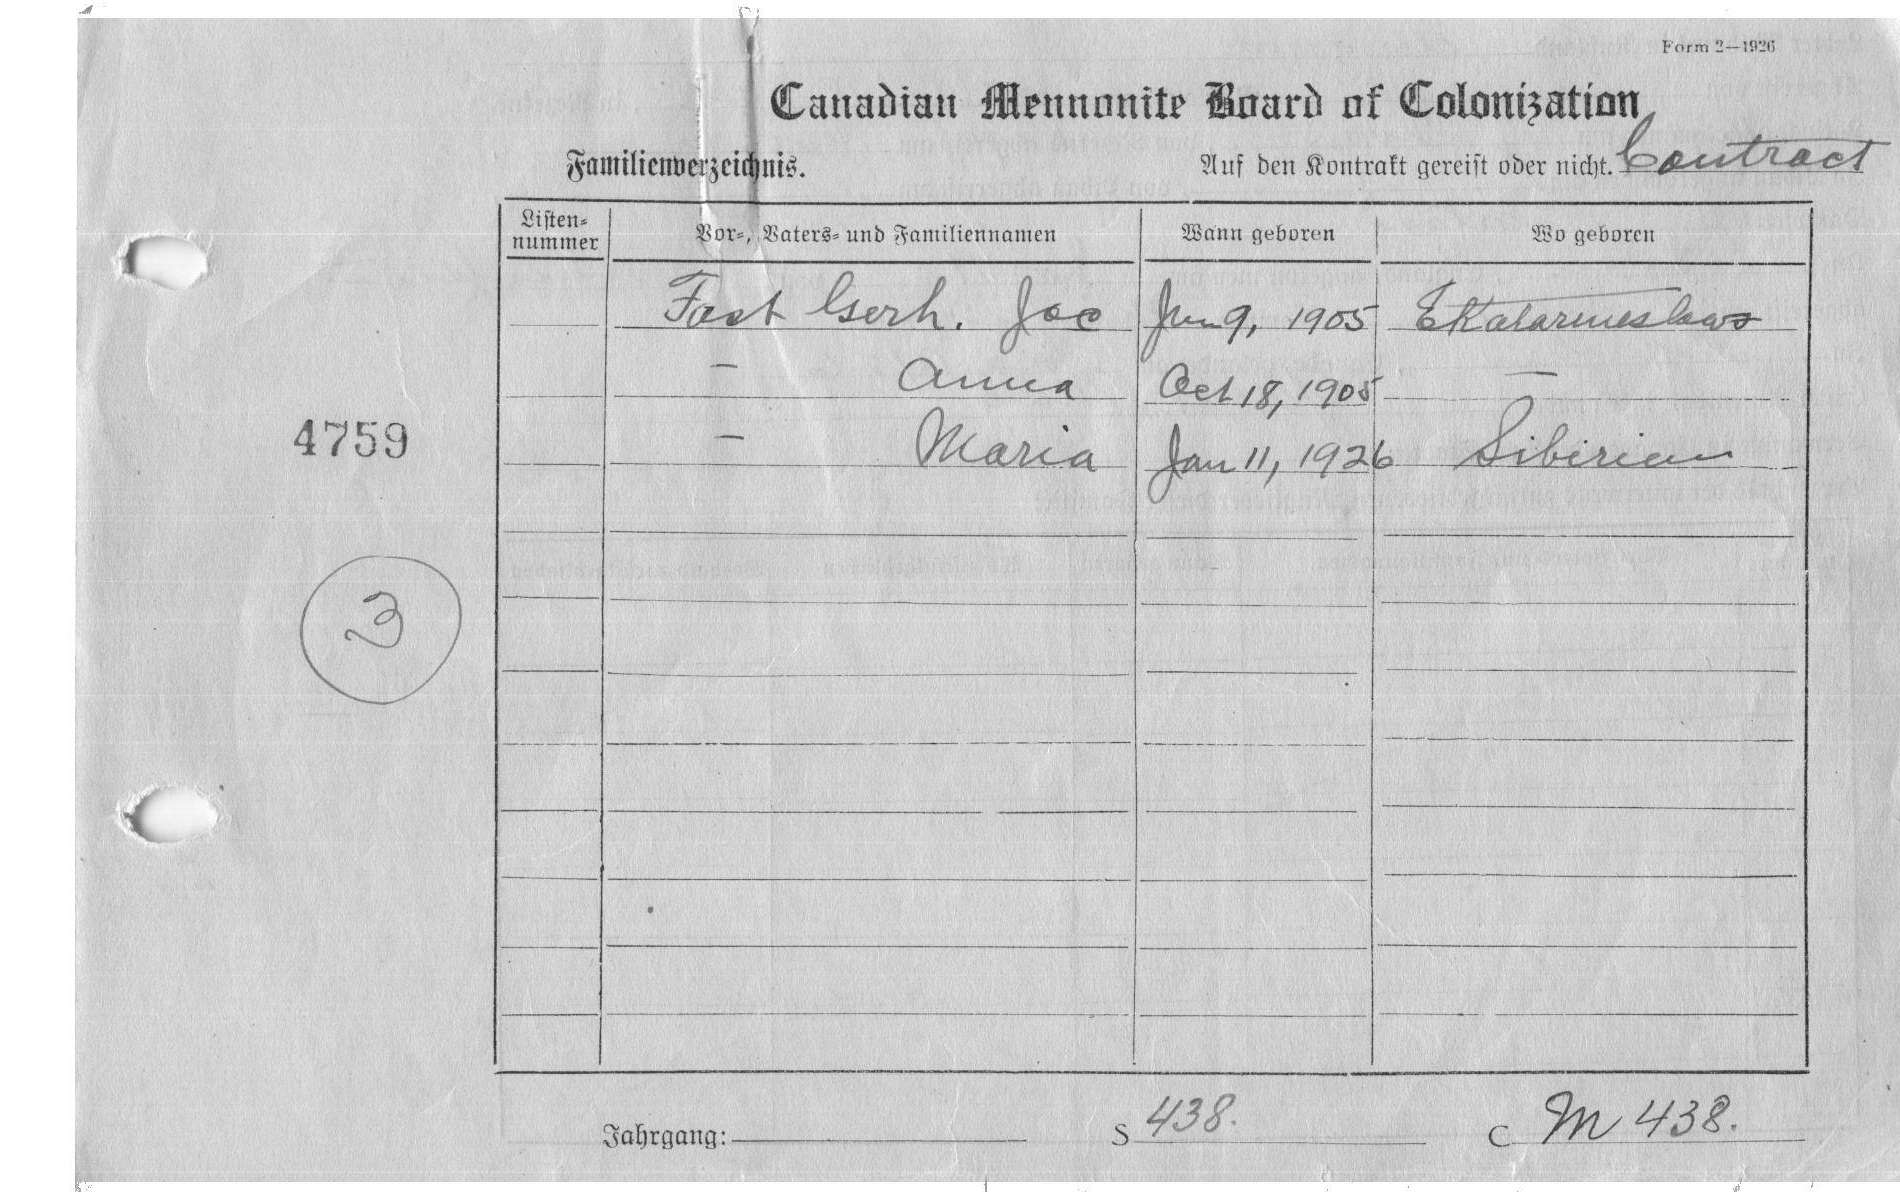 Form 2—1926
Canadian Mennonite Board of Colonization
Familienverzeichnis. Auf den Kontrakt gereist oder nicht. Contract
Listen-nummer Vor-, Vaters- und Familiennamen Wann geboren Wo geboren
Fast Gerh. Jac Jun 9, 1905 Ekatarineslaw
— Anna Oct 18, 1905 —
4759 — Maria Jan 11, 1926 Sibirien
3
Jahrgang: S 438. C M 438.